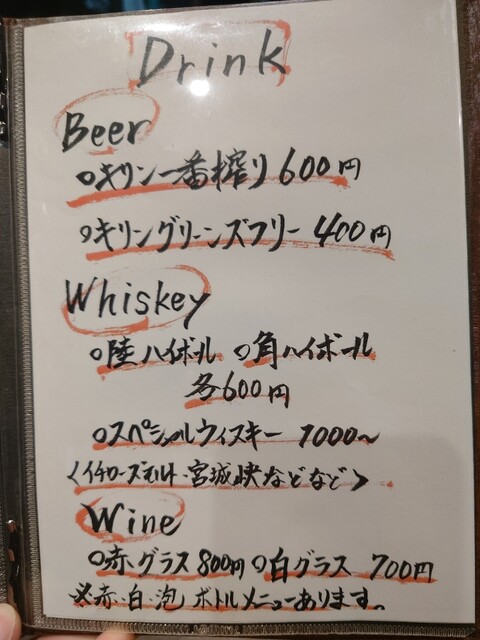 Drink
Beer
○キリン一番搾り 600円
○キリングリーンズフリー 400円
Whiskey
○陸ハイボール ○角ハイボール
各600円
○スペシャルウィスキー 1000〜
<イチローズモルト・宮城峡などなど>
Wine
○赤グラス 800円 ○白グラス 700円
※赤・白・泡 ボトルメニューあります。